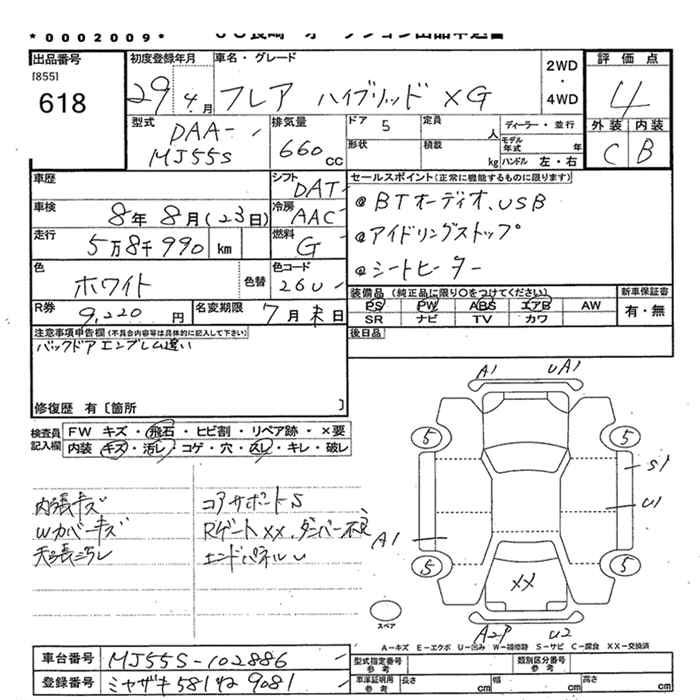 *0002009*
出品番号 [855] 618
初度登録年月 29年 4月
車名・グレード フレア ハイブリッド XG
2WD・4WD
評価点 4
外装 C 内装 B
型式 DAA-MJ55S
排気量 660cc
ドア 5 定員 人
形状 積載 kg
ディーラー・並行
モデル年式 年
ハンドル 左・右
車歴
シフト DAT
車検 8年 8月(23日)
冷房 AAC
走行 5万8千990 km
燃料 G
色 ホワイト 色替
色コード 26U
R券 9,220円
名変期限 7月末日
セールスポイント(正常に機能するものに限ります)
@BTオーディオ、USB
@アイドリングストップ
@シートヒーター
装備品(純正品に限り〇をつけてください) 新車保証書
PS PW ABS エアB AW 有・無
SR ナビ TV カワ
後日品
注意事項申告欄(不具合内容等は具体的に記入して下さい)
バックドアエンブレム違い
修復歴 有〔箇所 〕
検査員記入欄
FW キズ・飛石・ヒビ割・リペア跡・×要
内装 キズ・汚レ・コゲ・穴・スレ・キレ・破レ
内張キズ
Wカバーキズ
天張汚レ
コアサポートS
Rゲート XX、ダンパー不良
エンドパネルU
A1 UA1
5 5
S1
U1
A1
5 5
XX
スペア
A2P U2
A-キズ E-エクボ U-凹み W-補修跡 S-サビ C-腐食 XX-交換済
車台番号 MJ55S-102886
登録番号 ミヤザキ581 42 9081
型式指定番号参考 類別区分番号参考
車庫証明用参考 長さ cm 幅 cm 高さ cm